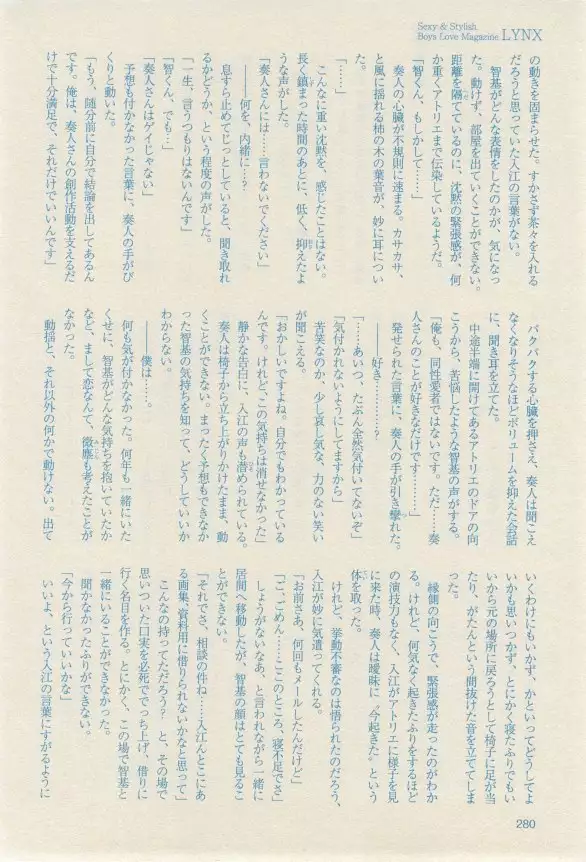 Sexy & Stylish
Boys Love Magazine LYNX
の動きを固まらせた。すかさず茶々を入れる
だろうと思っていた入江の言葉がない。
智基がどんな表情をしたのかが、気になっ
た。動けず、部屋を出ていくことができない。
距離を隔てているのに、沈黙の緊張感が、何
か重くアトリエまで伝染しているようだ。
「智くん、もしかして……」
奏人の心臓が不規則に速まる。カサカサ、
と風に揺れる柿の木の葉音が、妙に耳につい
た。
「……」
こんなに重い沈黙を、感じたことはない。
長く鎮まった時間のあとに、低く、抑えたよ
うな声がした。
「奏人さんには……言わないでください」
――何を、内緒に…?
息すら止めてじっとしていると、聞き取れ
るかどうか、という程度の声がした。
「一生、言うつもりはないんです」
「智くん、でも…」
「奏人さんはゲイじゃない」
予想も付かなかった言葉に、奏人の手がび
くりと動いた。
「もう、随分前に自分で結論を出してあるん
です。俺は、奏人さんの創作活動を支えるだ
けで十分満足で、それだけでいいんです」
バクバクする心臓を押さえ、奏人は聞こえ
なくなりそうなほどボリュームを抑えた会話
に、聞き耳を立てた。
中途半端に開けてあるアトリエのドアの向
こうから、苦悩したような智基の声がする。
「俺も、同性愛者ではないです。ただ……奏
人さんのことが好きなだけです………」
発せられた言葉に、奏人の手が引き攣れた。
――好き…………?
「……あいつ、たぶん全然気付いてないぞ」
「気付かれないようにしてますから」
苦笑なのか、少し哀し気な、力のない笑い
が聞こえる。
「おかしいですよね。自分でもわかっている
んです。けれど、この気持ちは消せなかった」
静かな告白に、入江の声も潜められている。
奏人は椅子から立ち上がりかけたまま、動
くことができない。まったく予想もできなか
った智基の気持ちを知って、どうしていいか
わからない。
――僕は……。
何も気が付かなかった。何年も一緒にいた
くせに、智基がどんな気持ちを抱いていたか
など、まして恋なんて、微塵も考えたことが
なかった。
動揺と、それ以外の何かで動けない。出て
いくわけにもいかず、かといってどうしてよ
いかも思いつかず、とにかく寝たふりでもい
いから元の場所に戻ろうとして椅子に足が当
たり、がたんという間抜けた音を立ててしま
った。
縁側の向こうで、緊張感が走ったのがわか
る。けれど、何気なく起きたふりをするほど
の演技力もなく、入江がアトリエに様子を見
に来た時、奏人は曖昧に〝今起きた〟という
体を取った。
けれど、挙動不審なのは悟られたのだろう、
入江が妙に気遣ってくれる。
「お前さあ、何回もメールしたんだけど」
「ご、ごめん……ここのところ、寝不足でさ」
しょうがないなあ、と言われながら一緒に
居間へ移動したが、智基の顔はとても見るこ
とができない。
「それでさ、相談の件ね……入江んとこにあ
る画集、資料用に借りられないかなと思って」
こんなの持ってただろう? と、その場で
思いついた口実を必死ででっち上げ、借りに
行く名目を作る。とにかく、この場で智基と
一緒にいることができなかった。
聞かなかったふりができない。
「今から行っていいかな」
いいよ、という入江の言葉にすがるように
280